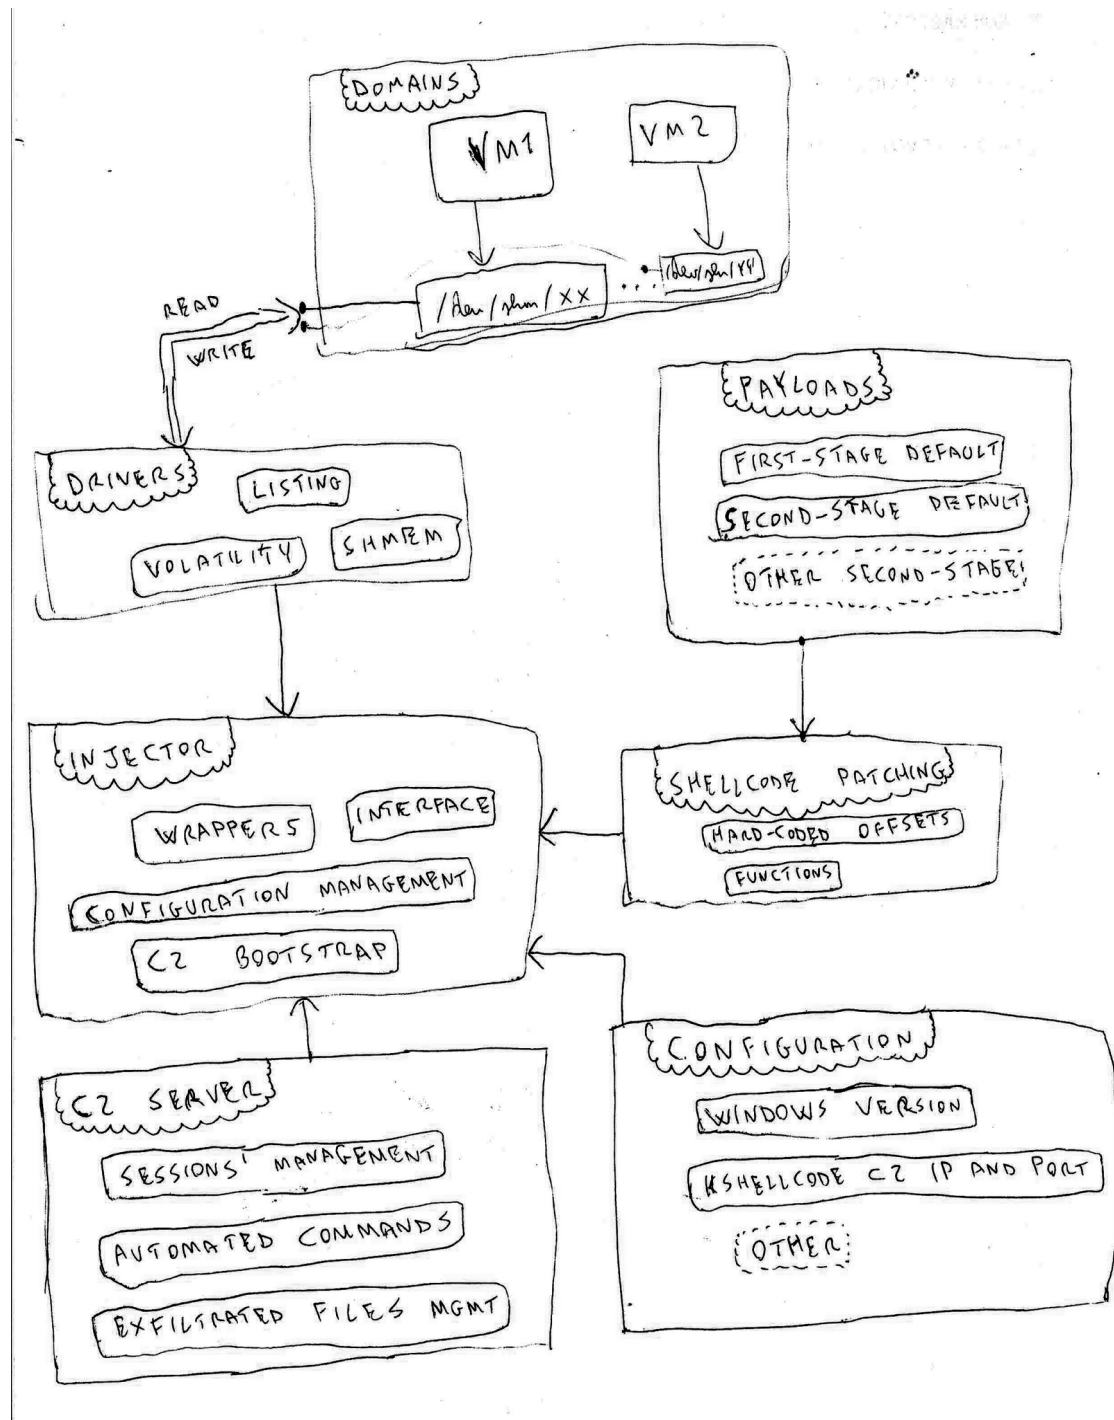 DOMAINS
VM1
VM2
/dev/shm/XX
/dev/shm/YY
READ
WRITE
DRIVERS
LISTING
VOLATILITY
SHMEM
PAYLOADS
FIRST-STAGE DEFAULT
SECOND-STAGE DEFAULT
OTHER SECOND-STAGE
INJECTOR
WRAPPERS
INTERFACE
CONFIGURATION MANAGEMENT
C2 BOOTSTRAP
SHELLCODE PATCHING
HARD-CODED OFFSETS
FUNCTIONS
C2 SERVER
SESSIONS' MANAGEMENT
AUTOMATED COMMANDS
EXFILTRATED FILES MGMT
CONFIGURATION
WINDOWS VERSION
KSHELLCODE C2 IP AND PORT
OTHER